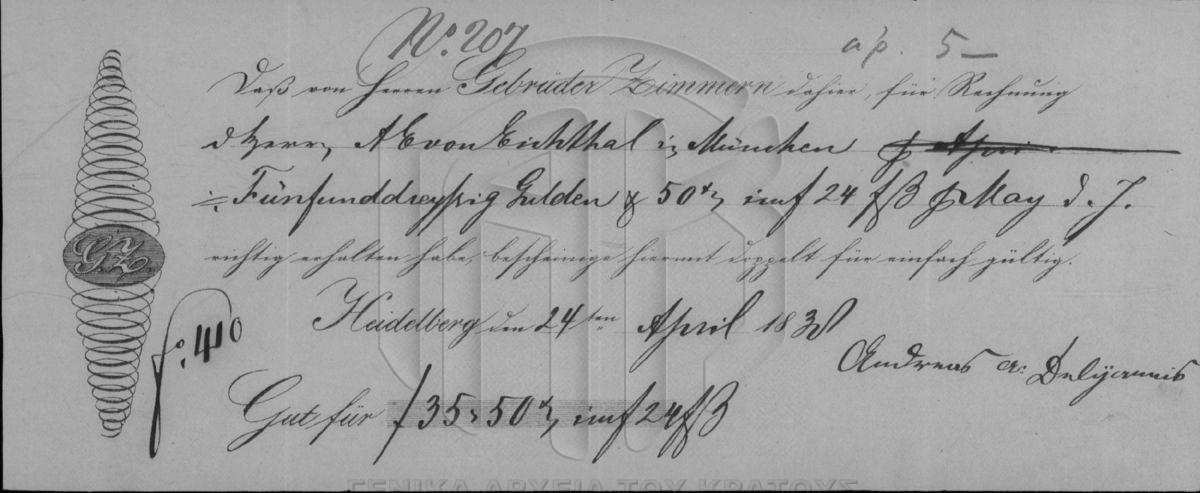 No. 207
a/p. 5—
Daß von Herren Gebrüder Zimmern dahier, für Rechnung
d Herrn A E von Eichthal in München p April
Fünfunddreyßig Gulden & 50 xr im f 24 fß p May d. J.
richtig erhalten habe, bescheinige hiermit doppelt für einfach gültig.
GZ
Heidelberg den 24ten April 1838
fo. 410
Andreas A: Delÿannis
Gut für f 35,, 50 xr im f 24 fß
ΓΕΝΙΚΑ ΑΡΧΕΙΑ ΤΟΥ ΚΡΑΤΟΥΣ